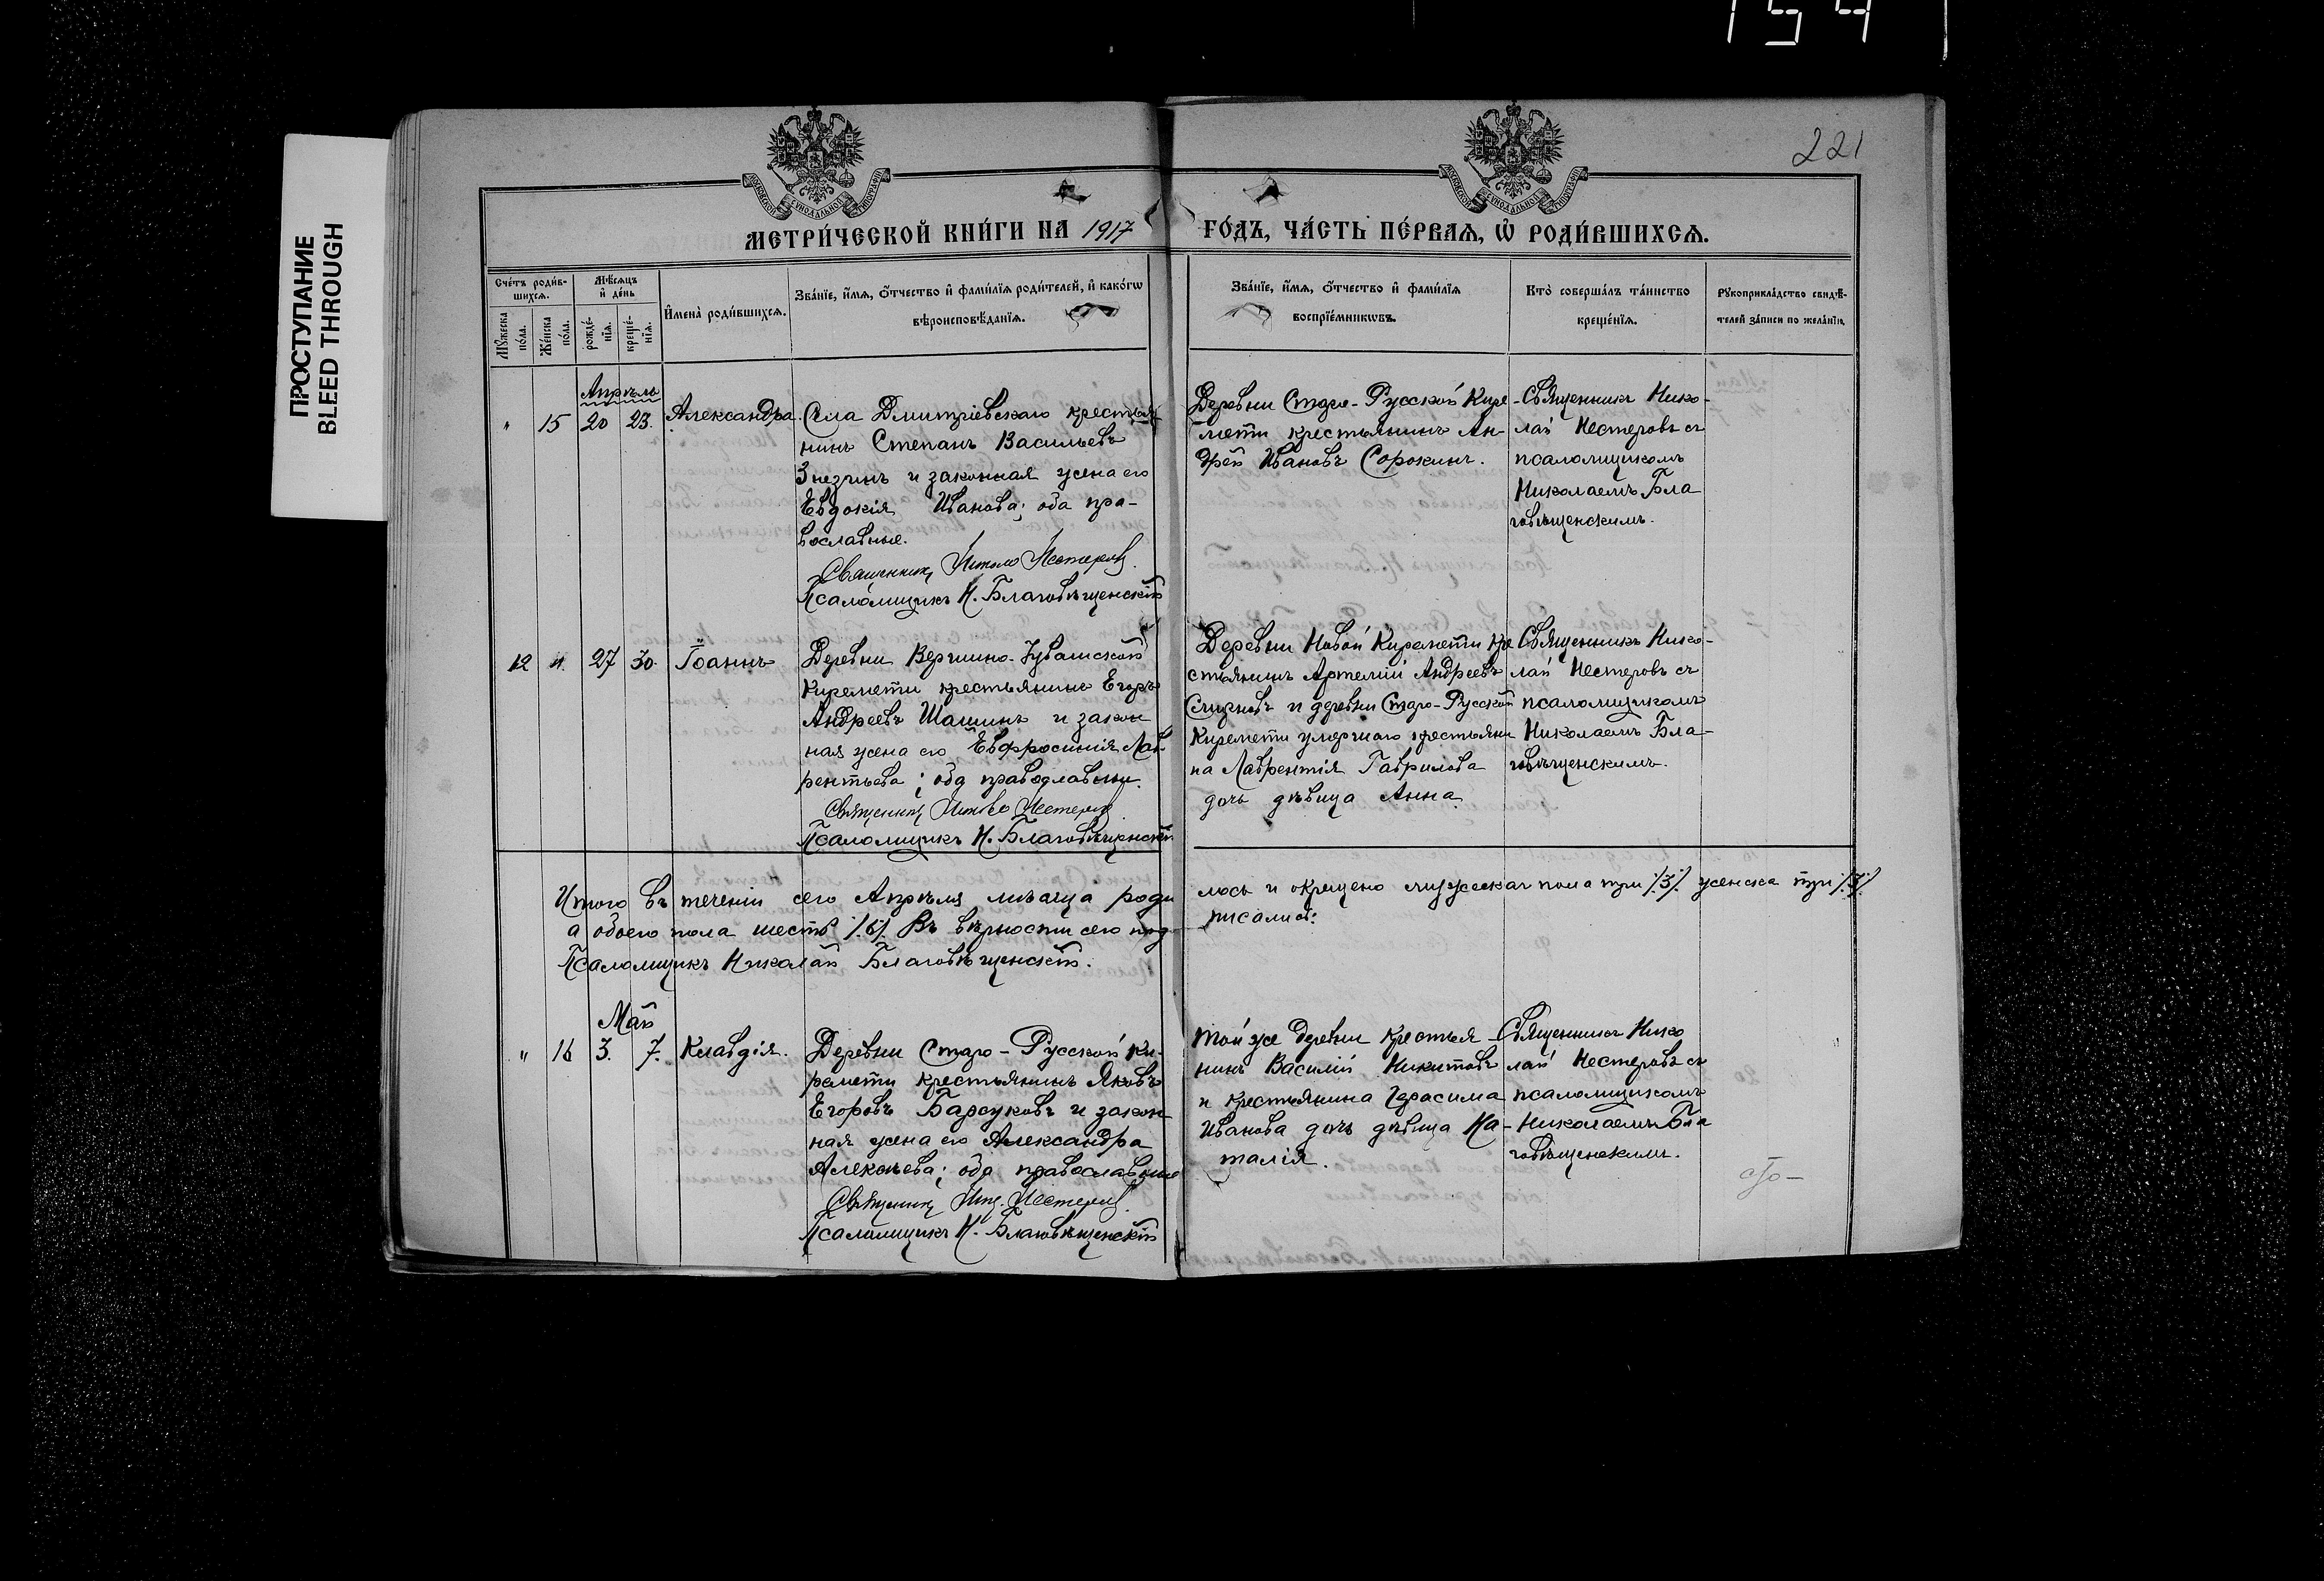 154
ПРОСТУПАНИЕ
BLEED THROUGH
221
МОСКОВСКОЙ СУНОДАЛЬНОЙ ТИПОГРАФІИ
МОСКОВСКОЙ СУНОДАЛЬНОЙ ТИПОГРАФІИ
МЕТРИ́ЧЕСКОЙ КНИ́ГИ НА 1917
ГО́ДЪ, ЧА́СТЬ ПЕ́РВАѦ, Ѡ РОДИ́ВШИХСѦ.
Сче́тъ роди́в-
шихсѧ.
Мѣ́сѧцъ
и҆ де́нь
Мꙋ́жеска
по́ла.
Же́нска
по́ла.
рожде́-
нїѧ.
креще́-
нїѧ.
И҆мена̀ роди́вшихсѧ.
Зва́нїе, и҆́мѧ, ѻ҆́тчество и҆ фами́лїѧ роди́телей, и҆ како́гѡ
вѣроисповѣ́данїѧ.
Зва́нїе, и҆́мѧ, ѻ҆́тчество и҆ фами́лїѧ
воспрїе́мникѡвъ.
Кто̀ соверша́лъ та́инство
креще́нїѧ.
Рꙋкоприкла́дство свидѣ́-
телей за́писи по жела́нїю.
Апрѣль
" 15 20 23. Александра.
Села Дмитріевскаго крестья-
нинъ Степанъ Васильевъ
и законная жена его
Евдокія Иванова; оба пра-
вославные.
Священникъ Нестеровъ.
Псаломщикъ Н. Благовѣщенскій
Деревни Старо-Русской Кире-
мети крестьянинъ Ан-
дрей Ивановъ Сорокинъ.
Священникъ Нико-
лай Нестеровъ съ
псаломщикомъ
Николаемъ Бла
говѣщенскимъ.
12 " 27 30 Іоаннъ
Деревни Вершино-Чувашской
Киремети крестьянинъ Егоръ
Андреевъ Шашинъ и закон
ная жена его Евфросинія Лав
рентьева; оба православные.
Священникъ Нестеровъ
Псаломщикъ Н. Благовѣщенскій
Деревни Новой Киремети кре
стьянинъ Артемій Андреевъ
Смирновъ и деревни Старо-Русской
Киремети умершаго крестьяни
на Лаврентія Гаврилова
дочь дѣвица Анна
Священникъ Нико-
лай Нестеровъ съ
псаломщикомъ
Николаемъ Бла-
говѣщенскимъ.
Итого въ теченіи сего Апрѣля мѣсяца роди
лось и окрещено мужеска пола три /3/ женска три /3/
а обоего пола шесть /6/ Въ вѣрности сего под
писались:
Псаломщикъ Николай Благовѣщенскій.
Май
" 16 3. 7. Клавдія.
Деревни Старо-Русской Ки-
ремети крестьянинъ Яковъ
Егоровъ Барсуковъ и закон
ная жена его Александра
Алексѣева; оба православные
Священникъ Нестеровъ.
Псаломщикъ Н. Благовѣщенскій
Той же деревни крестья-
нинъ Василій Никитовъ
и крестьянина Герасима
Иванова дочь дѣвица На-
талія.
Священникъ Нико
лай Нестеровъ съ
псаломщикомъ
Николаемъ Бла
говѣщенскимъ.